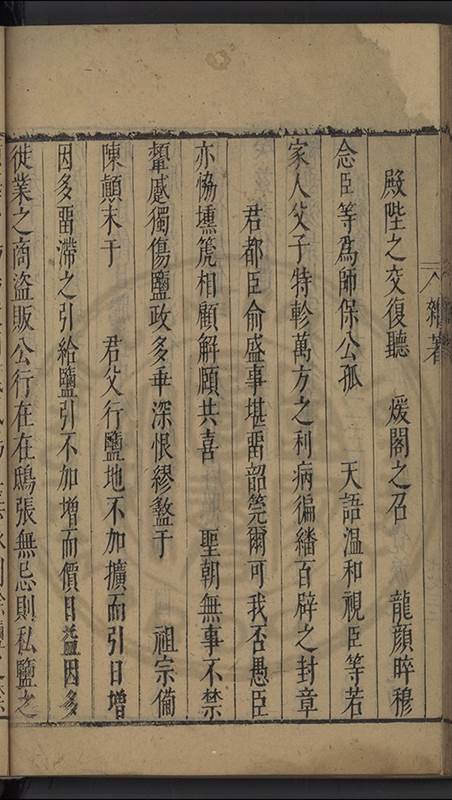 雜著
殿陛之交復聽　煖閣之召　龍顏晬穆
念臣等爲師保公孤　天語溫和視臣等若
家人父子特軫萬方之利病徧繙百辟之封章
君都臣俞盛事堪畱韶筦爾可我否愚臣
亦恊壎箎相顧解頤共喜　聖朝無事不禁
顰蹙獨傷鹽政多乖深恨繆盭于　祖宗備
陳顛末于　君父行鹽地不加擴而引日增
因多畱滯之引給鹽引不加增而價日盬因多
徙業之商盜販公行在在鴟張無忌則私鹽之